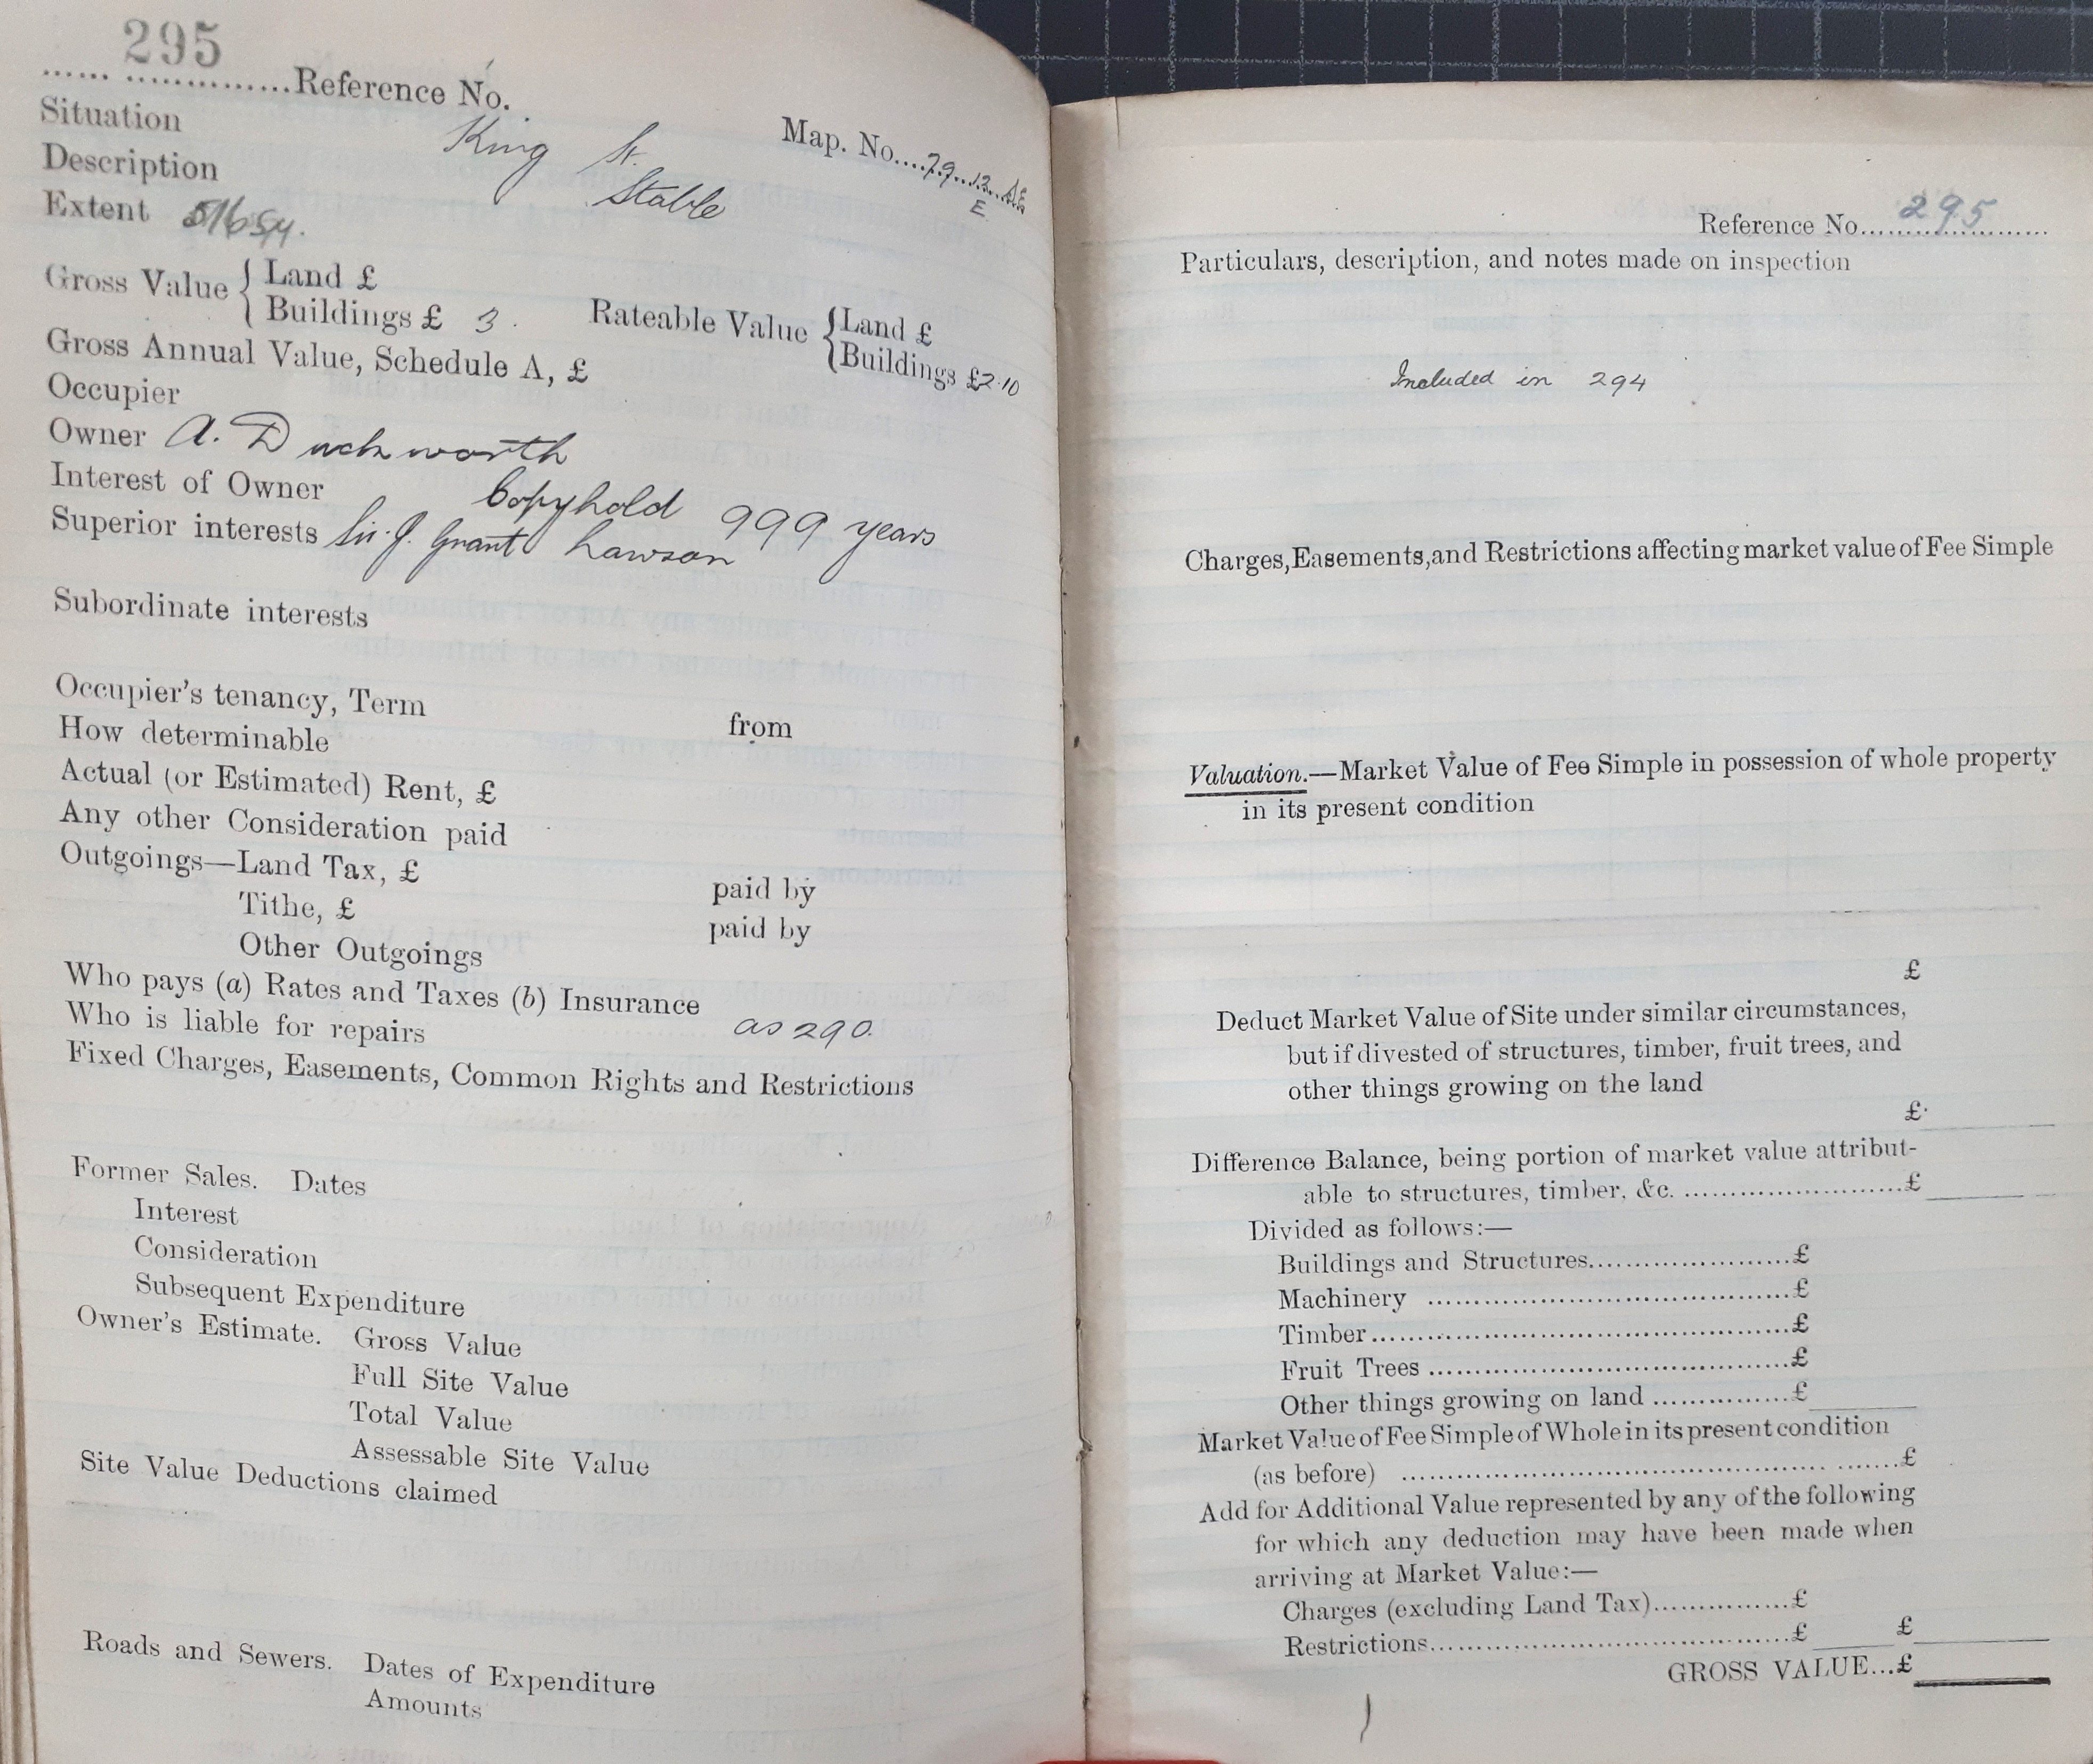 295
...... ...............Reference No.
Map. No....79..12
E
Situation King St.
Description Stable
Extent
Gross Value { Land £
Buildings £ 3.
Rateable Value { Land £
Buildings £2.10
Gross Annual Value, Schedule A, £
Occupier
Owner A. Duckworth
Interest of Owner Copyhold 999 years
Superior interests Sir. J. Grant Lawson
Subordinate interests
Occupier's tenancy, Term from
How determinable
Actual (or Estimated) Rent, £
Any other Consideration paid
Outgoings—Land Tax, £ paid by
Tithe, £ paid by
Other Outgoings
Who pays (a) Rates and Taxes (b) Insurance
Who is liable for repairs as 290.
Fixed Charges, Easements, Common Rights and Restrictions
Former Sales. Dates
Interest
Consideration
Subsequent Expenditure
Owner's Estimate. Gross Value
Full Site Value
Total Value
Assessable Site Value
Site Value Deductions claimed
Roads and Sewers. Dates of Expenditure
Amounts
Reference No....295....
Particulars, description, and notes made on inspection
Included in 294
Charges, Easements, and Restrictions affecting market value of Fee Simple
Valuation.—Market Value of Fee Simple in possession of whole property
in its present condition
£
Deduct Market Value of Site under similar circumstances,
but if divested of structures, timber, fruit trees, and
other things growing on the land
£
Difference Balance, being portion of market value attribut-
able to structures, timber, &c. ........................£
Divided as follows:—
Buildings and Structures......................£
Machinery ......................................£
Timber............................................£
Fruit Trees ......................................£
Other things growing on land ...............£
Market Value of Fee Simple of Whole in its present condition
(as before) ................................................ .......£
Add for Additional Value represented by any of the following
for which any deduction may have been made when
arriving at Market Value:—
Charges (excluding Land Tax)...............£
Restrictions......................................£ £
GROSS VALUE...£